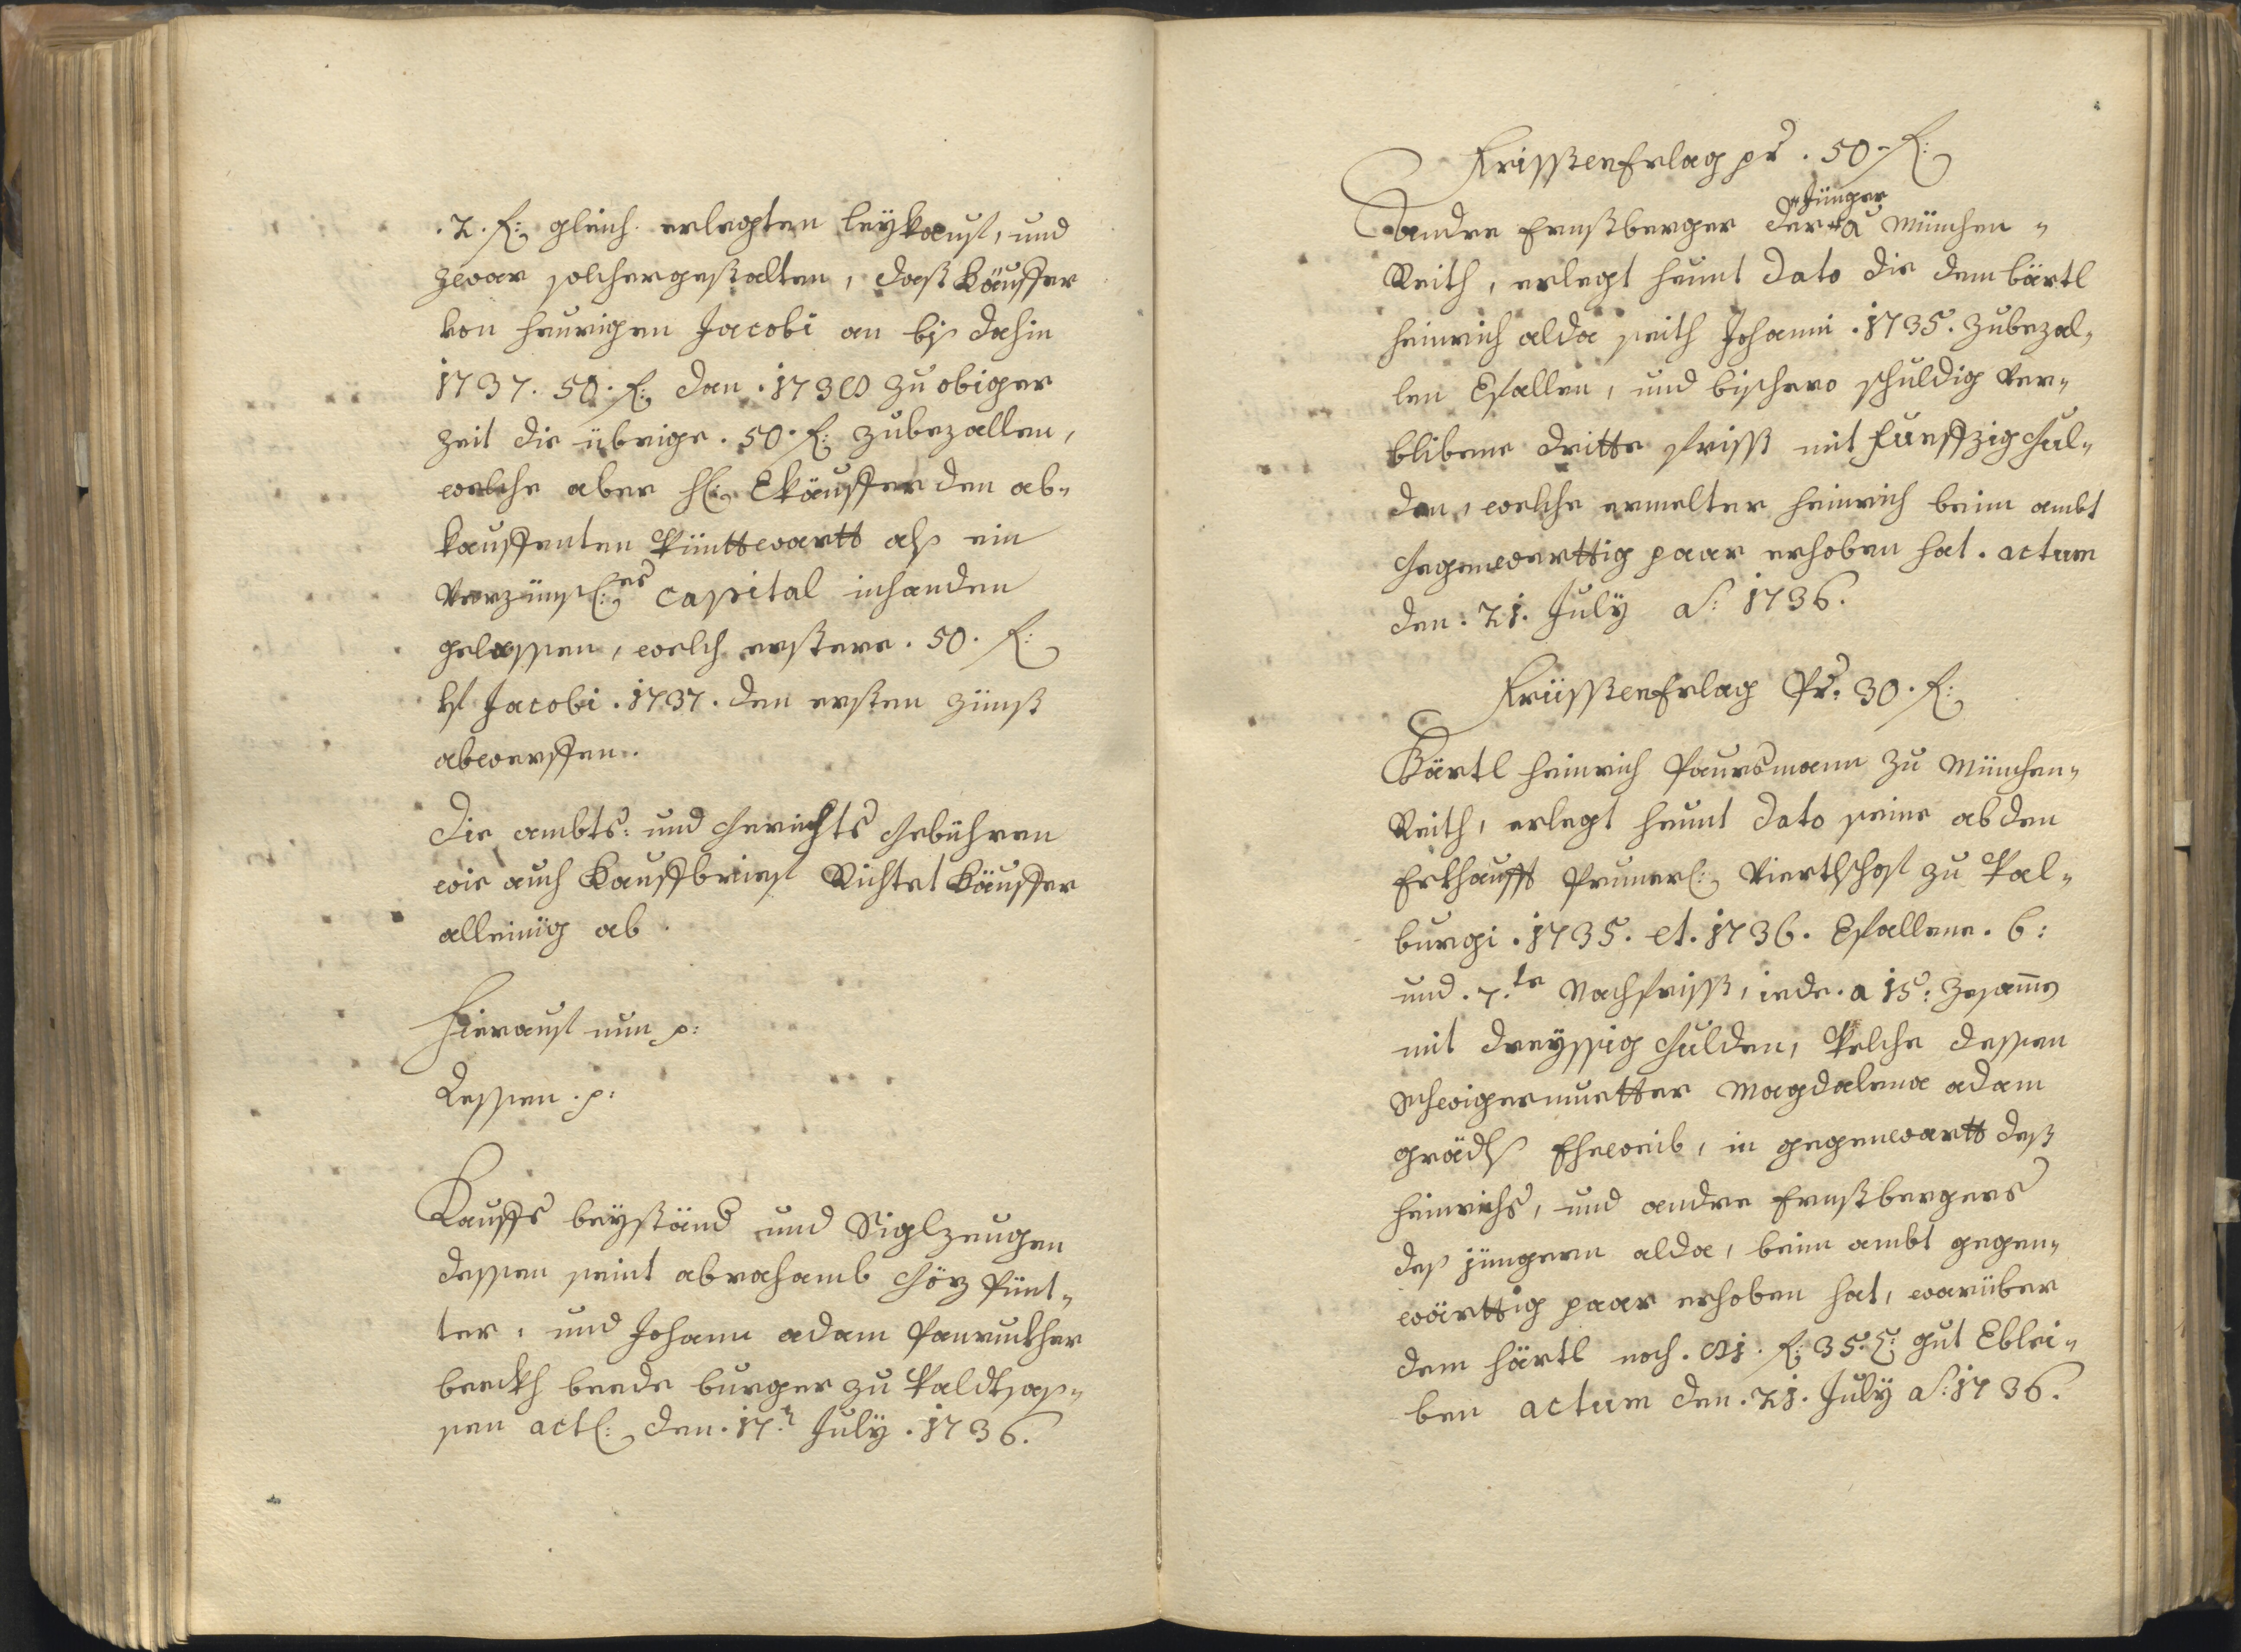 .2. f: gleich erlegten leykauf, und
zwar solchergestalten, daß Käuffer
von heurigen Jacobi an biß dahin
1737. 50. f: dan .1738 zu obiger
zeit die übrige .50. f: zubezallen,
welche aber H: Vkäuffer den ab-
kauffenten Pünttwartt alß ein
Verzünsl:es capital inhanden
gelassen, welch erstere .50. f:
Jacobi .1737. den ersten Zünß
abwerffen.
Die ambts: und Gerichts Gebühren
wie auch Kauffbrief Richtet Käuffer
alleinig ab.
Hierauf nun p:
Dessen .p:
Kauffs beyständ und Siglzeugen
dessen seint abrahamb Pünt-
ter, und Johann adam
beckh beede burger zu Waldtsaß-
sen actl: den .17. July .1736.
Fristenerlag pr .50. f:
Andre Ernstberger der Jünger zu München-
Reith, erlegt heunt dato die dem bärtl
heinrich alda seith Johanni .1735. zubezal-
len Vfallen, und bishero schuldig ver-
blibene dritte frist mit funffzig Gul-
den, welche ermelter heinrich beim ambt
Gegenwerttig paar erhoben hat. actum
den: 21. July a: 1736.
Früstenerlag Pr: 30. f:
Bärtl heinrich Paursmann zu München-
Reith, erlegt heunt dato seine ab den
Erkhaufft viertlhof zu Wal-
burgi .1735. et .1736. Vfallene .6:
und .7.te Nachfrist, iede .a 15: zesamen
mit dreyssig Gulden, Welche dessen
Schwigermuetter Magdalena adam
grädls Eheweib, in gegenwartt deß
heinrichs, und andre Ernstbergers
deß jüngern alda, beim ambt gegen-
wärttig paar erhoben hat, warüber
dem härtl noch f: 35. gut Vblei-
ben actum den .21. July a: 1736.